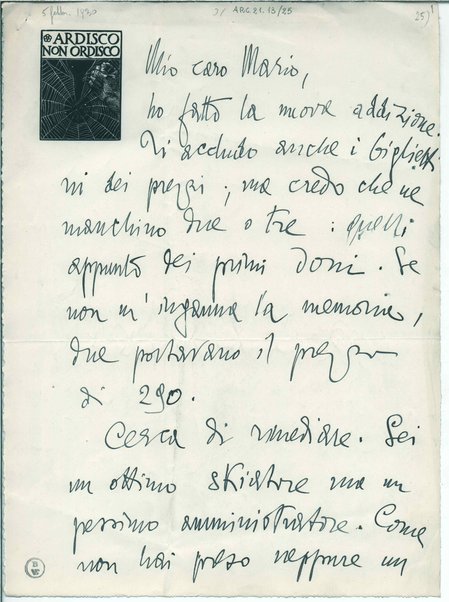 5 febbr. 1930
ARC. 21. 13/25
25)
ARDISCO
NON ORDISCO
Mio caro Mario,
ho fatto la nuova addizione.
Ti accludo anche i bigliett
ni dei prezzi; ma credo che ne
manchino due o tre: quelli
appunto dei primi doni. Se
non m'inganna la memoria,
due portavano il prezzo
di 290.
Cerca di rimediare. Sei
un ottimo skiatore ma un
pessimo amministratore. Come
non hai preso neppure un